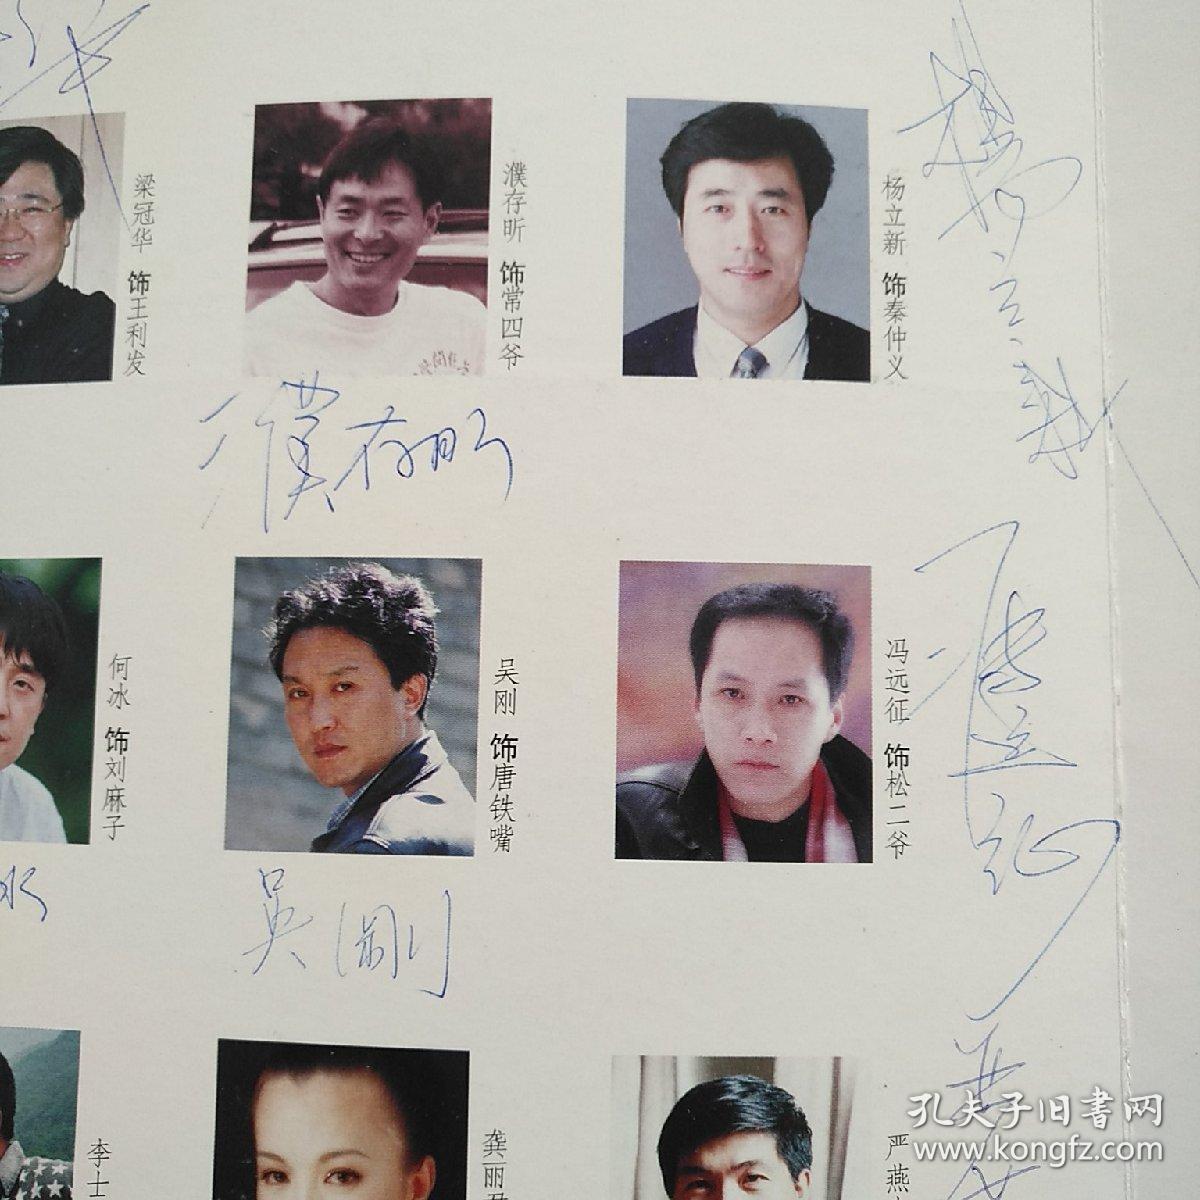 梁冠华 饰王利发
濮存昕 饰常四爷
杨立新 饰秦仲义
濮存昕
杨立新
何冰 饰刘麻子
吴刚 饰唐铁嘴
冯远征 饰松二爷
吴刚
李士
龚丽君
严燕
孔夫子旧书网
www.kongfz.com